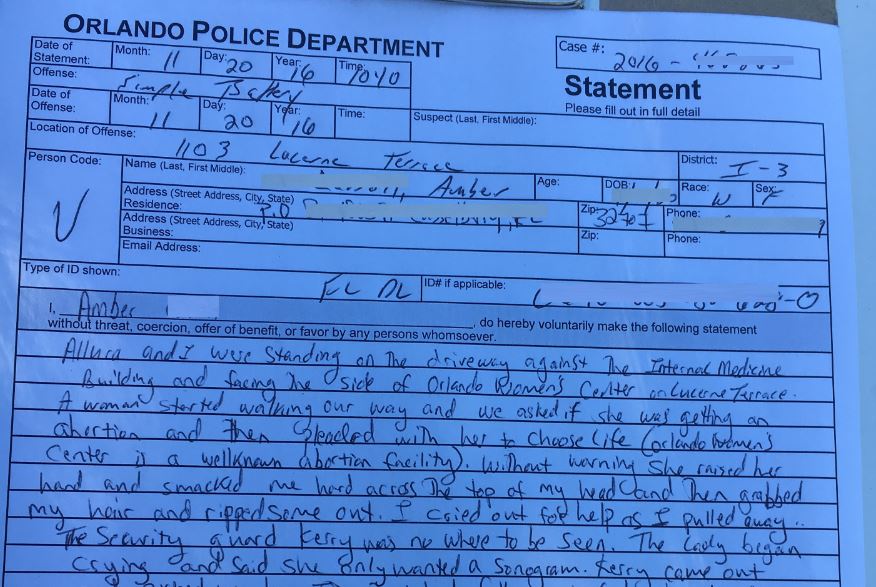 ORLANDO POLICE DEPARTMENT
Date of Statement: Month: 11 Day: 20 Year: 16 Time: 1040
Case #: 2016 -
Offense: Simple Battery
Statement
Please fill out in full detail
Date of Offense: Month: 11 Day: 20 Year: 16 Time:
Suspect (Last, First Middle):
Location of Offense: 1103 Lucerne Terrace
District: I-3
Person Code: V
Name (Last, First Middle): Amber
Age: DOB: Race: W Sex: F
Address (Street Address, City, State)
Residence: P.O Zip: Phone:
Address (Street Address, City, State)
Business: Zip: Phone:
Email Address:
Type of ID shown: FL DL ID# if applicable:
I, Amber , do hereby voluntarily make the following statement
without threat, coercion, offer of benefit, or favor by any persons whomsoever.
and I were standing on the driveway against the Internal Medicine
Building and facing the side of Orlando Women's Center on Lucerne Terrace.
A woman started walking our way and we asked if she was getting an
abortion and then pleaded with her to choose life (orlando women's
Center is a wellknown abortion facility). Without warning she raised her
hand and smacked me hard across the top of my head and then grabbed
my hair and ripped some out. I cried out for help as I pulled away.
The security guard Kerry was no where to be seen. The lady began
crying and said she only wanted a sonogram. Kerry came out